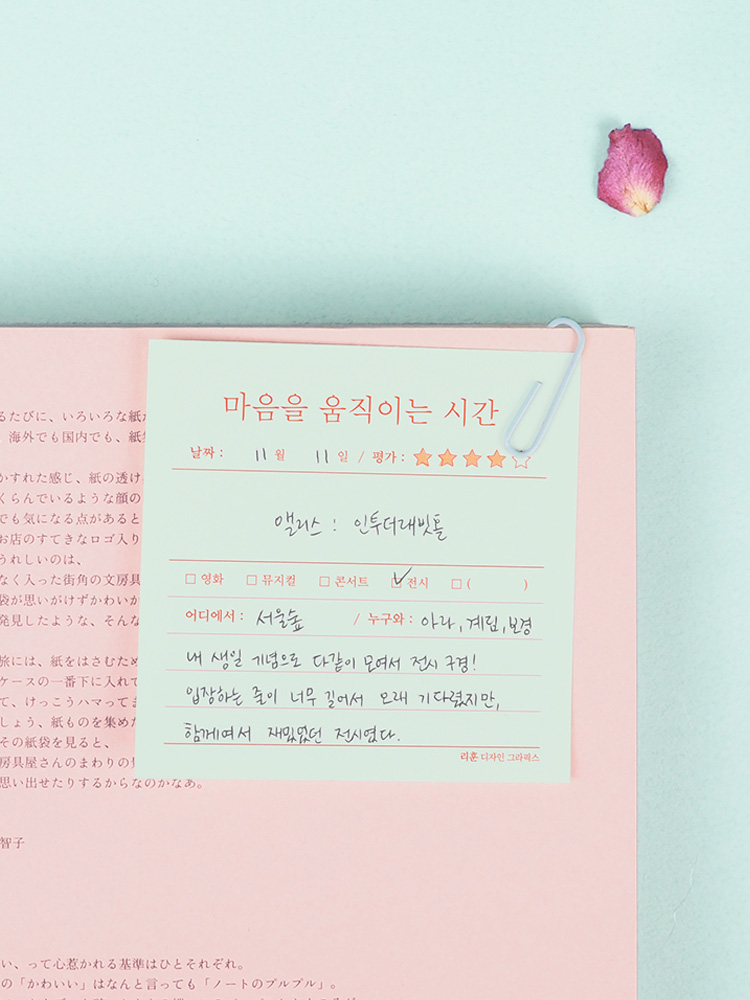 마음을 움직이는 시간
날짜 : 11 월 11 일 / 평가 :
앨리스 : 인투더래빗홀
영화 뮤지컬 콘서트 전시 ( )
어디에서 : 서울숲 / 누구와 : 아라, 계림, 보경
내 생일 기념으로 다같이 모여서 전시 구경!
입장하는 줄이 너무 길어서 오래 기다렸지만,
함께여서 재밌었던 전시였다.
리훈 디자인 그라픽스
るたびに、いろいろな紙
海外でも国内でも、紙
かすれた感じ、紙の透け
くらんでいるような顔の
でも気になる点があると
お店のすてきなロゴ入り
うれしいのは、
なく入った街角の文房具
袋が思いがけずかわいか
発見したような、そんな
旅には、紙をはさむため
ケースの一番下に入れて
て、けっこうハマってま
しょう、紙ものを集めた
その紙袋を見ると、
房具屋さんのまわりの
思い出せたりするからなのかなあ。
智子
い、って心惹かれる基準はひとそれぞれ。
の「かわいい」はなんと言っても「ノートのプルプル」。